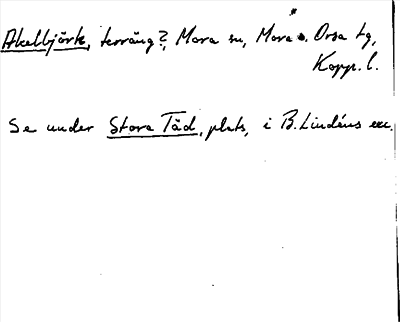 Akelbjörk, terräng?, Mora sn, Mora o. Orsa tg,
Kopp. l.
Se under Stora Täd, plats, i B. Lindéns exc.